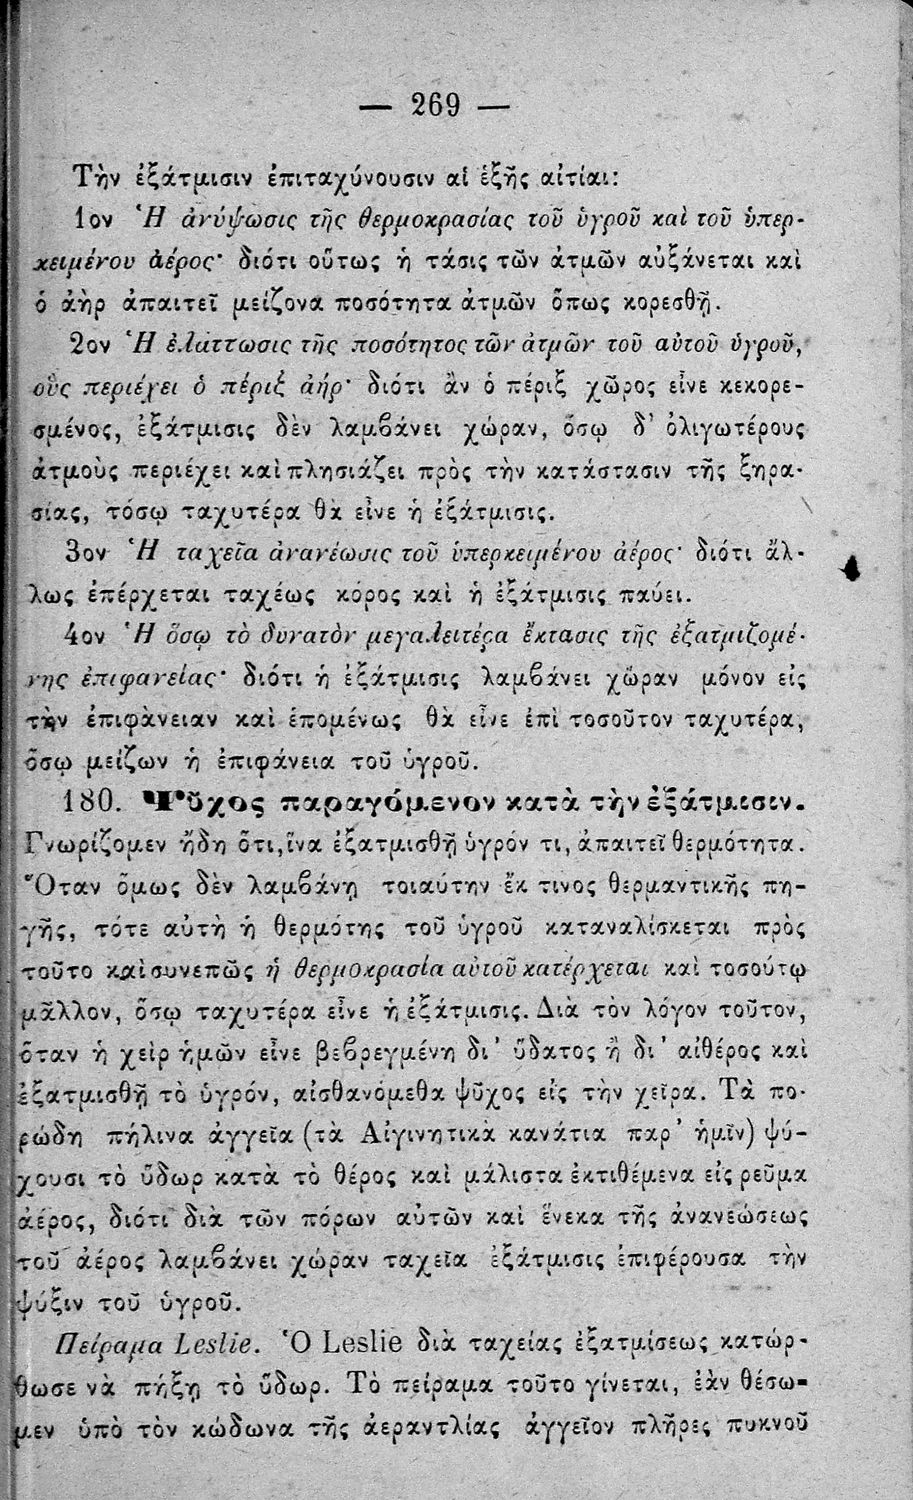 — 269 —
Τὴν ἐξάτμισιν ἐπιταχύνουσιν αἱ ἑξῆς αἰτίαι:
1ον Ἡ ἀνύψωσις τῆς θερμοκρασίας τοῦ ὑγροῦ καὶ τοῦ ὑπερ-
κειμένου ἀέρος· διότι οὕτως ἡ τάσις τῶν ἀτμῶν αὐξάνεται καὶ
ὁ ἀὴρ ἀπαιτεῖ μείζονα ποσότητα ἀτμῶν ὅπως κορεσθῇ.
2ον Ἡ ἐλάττωσις τῆς ποσότητος τῶν ἀτμῶν τοῦ αὐτοῦ ὑγροῦ,
οὓς περιέχει ὁ πέριξ ἀήρ· διότι ἂν ὁ πέριξ χῶρος εἶνε κεκορε-
σμένος, ἐξάτμισις δὲν λαμβάνει χώραν, ὅσῳ δ' ὀλιγωτέρους
ἀτμοὺς περιέχει καὶ πλησιάζει πρὸς τὴν κατάστασιν τῆς ξηρα-
σίας, τόσῳ ταχυτέρα θὰ εἶνε ἡ ἐξάτμισις.
3ον Ἡ ταχεῖα ἀνανέωσις τοῦ ὑπερκειμένου ἀέρος· διότι ἄλ-
λως ἐπέρχεται ταχέως κόρος καὶ ἡ ἐξάτμισις παύει.
4ον Ἡ ὅσῳ τὸ δυνατὸν μεγαλειτέρα ἔκτασις τῆς ἐξατμιζομέ-
νης ἐπιφανείας· διότι ἡ ἐξάτμισις λαμβάνει χώραν μόνον εἰς
τὴν ἐπιφάνειαν καὶ ἑπομένως θὰ εἶνε ἐπὶ τοσοῦτον ταχυτέρα,
ὅσῳ μείζων ἡ ἐπιφάνεια τοῦ ὑγροῦ.
180. Ψῦχος παραγόμενον κατὰ τὴν ἐξάτμισιν.
Γνωρίζομεν ἤδη ὅτι, ἵνα ἐξατμισθῇ ὑγρόν τι, ἀπαιτεῖ θερμότητα.
Ὅταν ὅμως δὲν λαμβάνῃ τοιαύτην ἔκ τινος θερμαντικῆς πη-
γῆς, τότε αὐτὴ ἡ θερμότης τοῦ ὑγροῦ καταναλίσκεται πρὸς
τοῦτο καὶ συνεπῶς ἡ θερμοκρασία αὐτοῦ κατέρχεται καὶ τοσούτῳ
μᾶλλον, ὅσῳ ταχυτέρα εἶνε ἡ ἐξάτμισις. Διὰ τὸν λόγον τοῦτον,
ὅταν ἡ χεὶρ ἡμῶν εἶνε βεβρεγμένη δι' ὕδατος ἢ δι' αἰθέρος καὶ
ἐξατμισθῇ τὸ ὑγρόν, αἰσθανόμεθα ψῦχος εἰς τὴν χεῖρα. Τὰ πο-
ρώδη πήλινα ἀγγεῖα (τὰ Αἰγινητικὰ κανάτια παρ' ἡμῖν) ψύ-
χουσι τὸ ὕδωρ κατὰ τὸ θέρος καὶ μάλιστα ἐκτιθέμενα εἰς ρεῦμα
ἀέρος, διότι διὰ τῶν πόρων αὐτῶν καὶ ἕνεκα τῆς ἀνανεώσεως
τοῦ ἀέρος λαμβάνει χώραν ταχεῖα ἐξάτμισις ἐπιφέρουσα τὴν
ψύξιν τοῦ ὑγροῦ.
Πείραμα Leslie. Ὁ Leslie διὰ ταχείας ἐξατμίσεως κατώρ-
θωσε νὰ πήξῃ τὸ ὕδωρ. Τὸ πείραμα τοῦτο γίνεται, ἐὰν θέσω-
μεν ὑπὸ τὸν κώδωνα τῆς ἀεραντλίας ἀγγεῖον πλῆρες πυκνοῦ